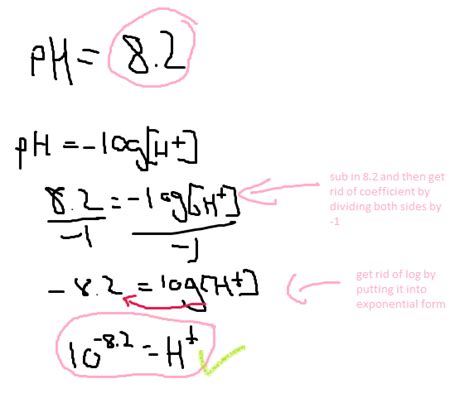 pH = 8.2
pH = -log[H+]
8.2 = -log[H+]
-1 -1
sub in 8.2 and then get
rid of coefficient by
dividing both sides by
-1
-8.2 = log[H+]
get rid of log by
putting it into
exponential form
10^-8.2 = H+